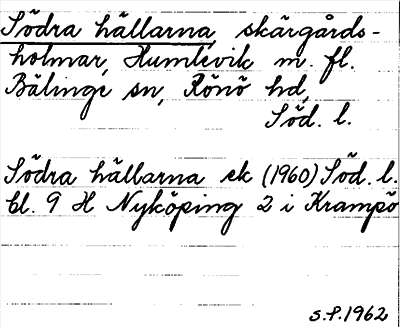 Södra hällarna, skärgårds-
holmar, Humlevik m. fl.
Bälinge sn, Rönö hd,
Söd. l.
Södra hällarna ek (1960) Söd. l.
bl. 9 H Nyköping 2 i Krampö
s.f. 1962